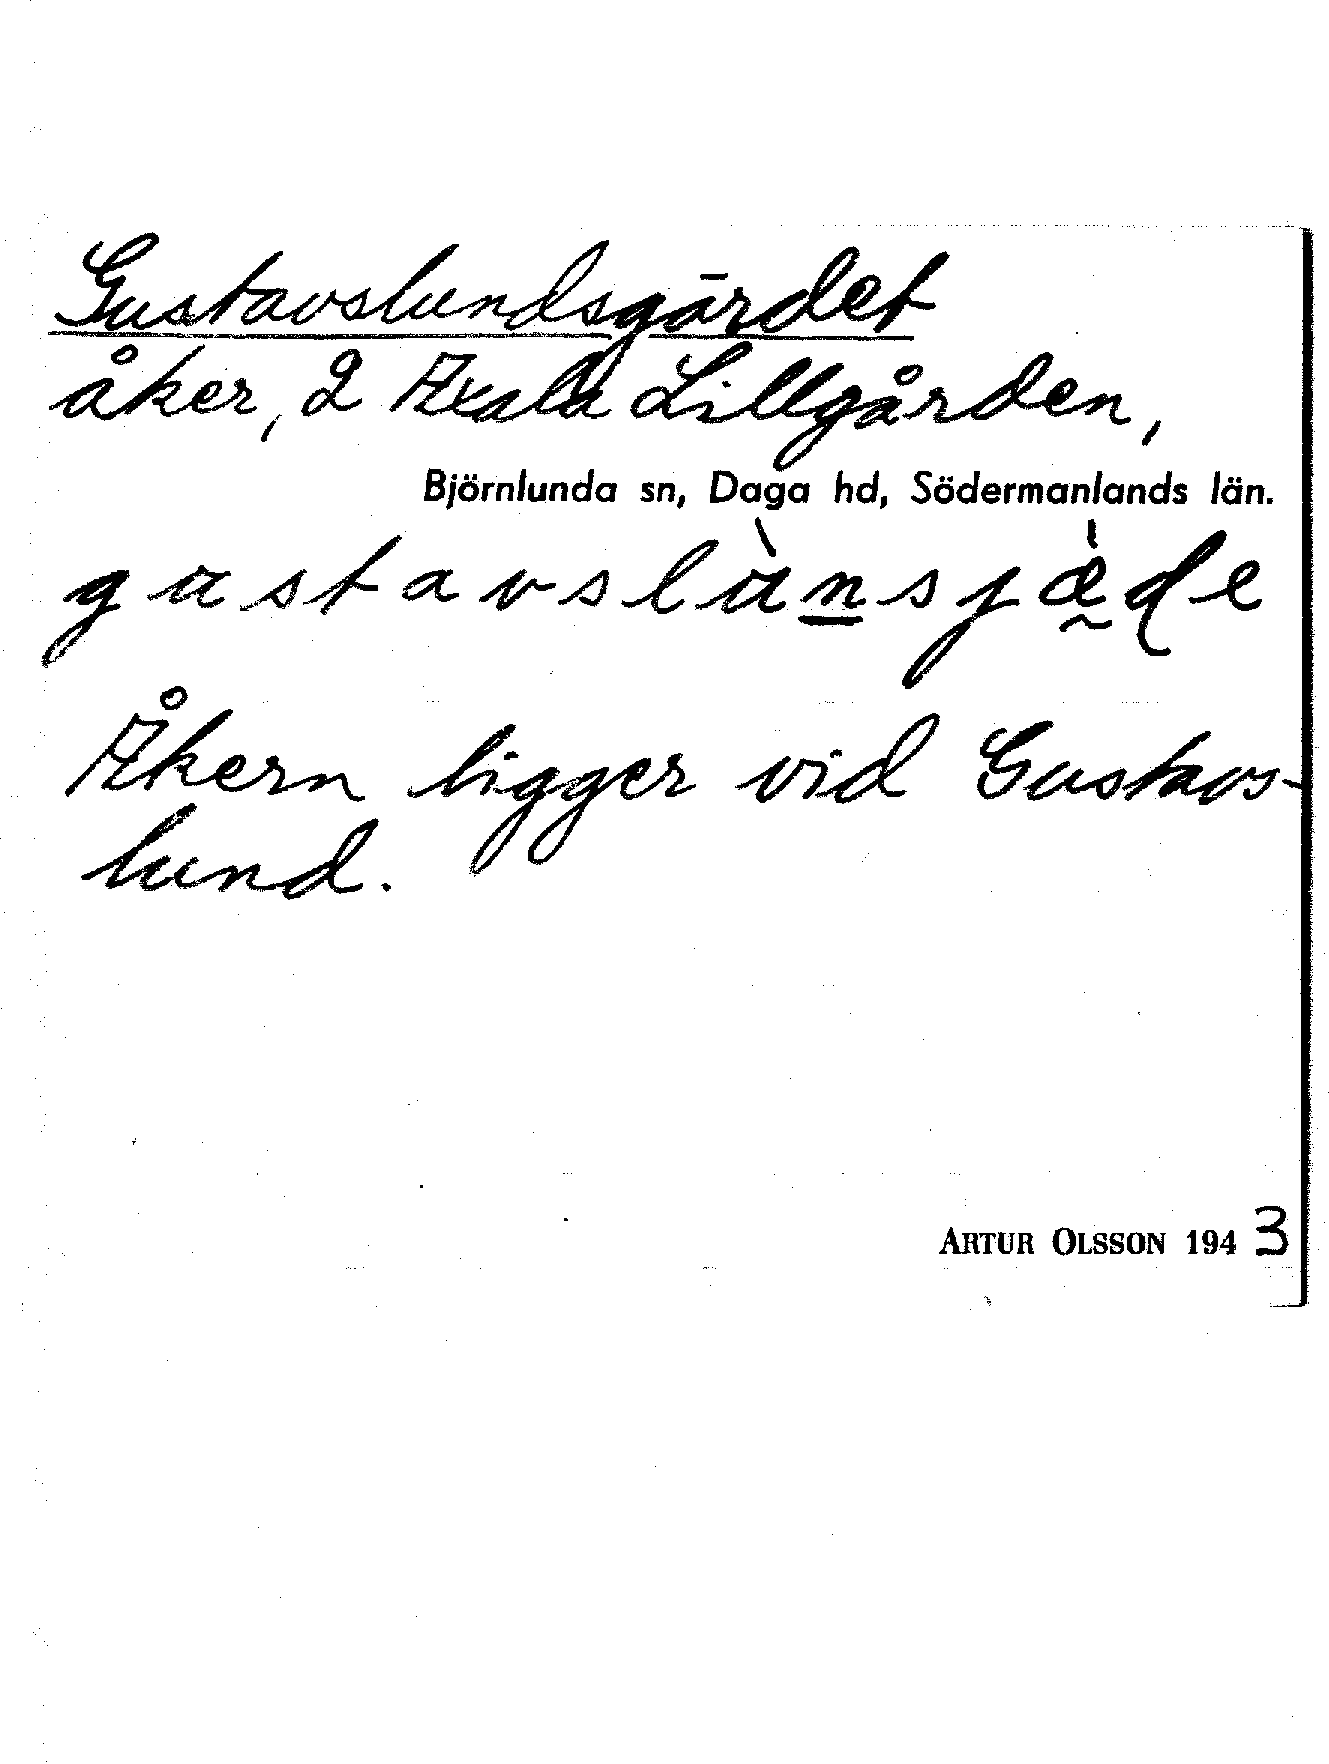 Gustavslundsgärdet
åker, 2 Axala Lillgården,
Björnlunda sn, Daga hd, Södermanlands län.
gustavslùnsjæ̀de
Åkern ligger vid Gustavs-
lund.
ARTUR OLSSON 1943